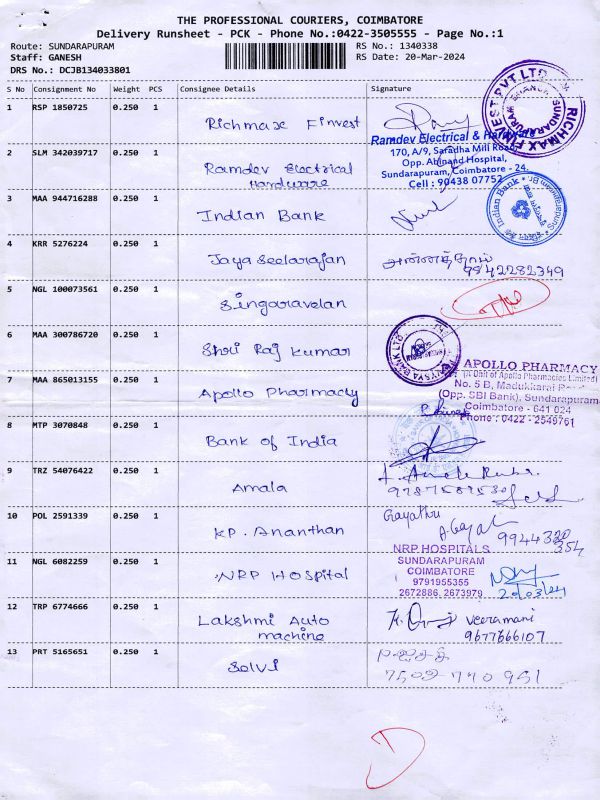 THE PROFESSIONAL COURIERS, COIMBATORE
Delivery Runsheet - PCK - Phone No.:0422-3505555 - Page No.:1
Route: SUNDARAPURAM
RS No.: 1340338
Staff: GANESH
RS Date: 20-Mar-2024
DRS No.: DCJB134033801
S No Consignment No Weight PCS Consignee Details Signature
1 RSP 1850725 0.250 1 Richmax Finvest
RICHMAX FINVEST PVT LTD
SUNDARAPURAM BRANCH
2 SLM 342039717 0.250 1 Ramdev Electrical
Hardware
Ramdev Electrical &
170, A/9, Saradha Mill Road
Opp. Abinand Hospital,
Sundarapuram, Coimbatore - 24.
Cell : 90438 07752
3 MAA 944716288 0.250 1 Indian Bank
Indian Bank
4 KRR 5276224 0.250 1 Jaya Seelarajan
9842282349
5 NGL 100073561 0.250 1 Singaravelan
6 MAA 300786720 0.250 1 Shri Raj Kumar
7 MAA 865013155 0.250 1 Apollo Pharmacy
APOLLO PHARMACY
(A Unit of Apollo Pharmacies Limited)
No. 5 B, Madukkarai
(Opp. SBI Bank), Sundarapuram
Coimbatore - 641 024
Phone : 0422 - 2549761
8 MTP 3070848 0.250 1 Bank of India
9 TRZ 54076422 0.250 1 Amala
10 POL 2591339 0.250 1 KP. Ananthan
Gayathri
A.Gayat
9944330
354
11 NGL 6082259 0.250 1 NRP Hospital
NRP HOSPITALS
SUNDARAPURAM
COIMBATORE
9791955355
2672886, 2673979
20/03/24
12 TRP 6774666 0.250 1 Lakshmi Auto
machine
Veeramani
9677666107
13 PRT 5165651 0.250 1 Solvi
7502 770 951